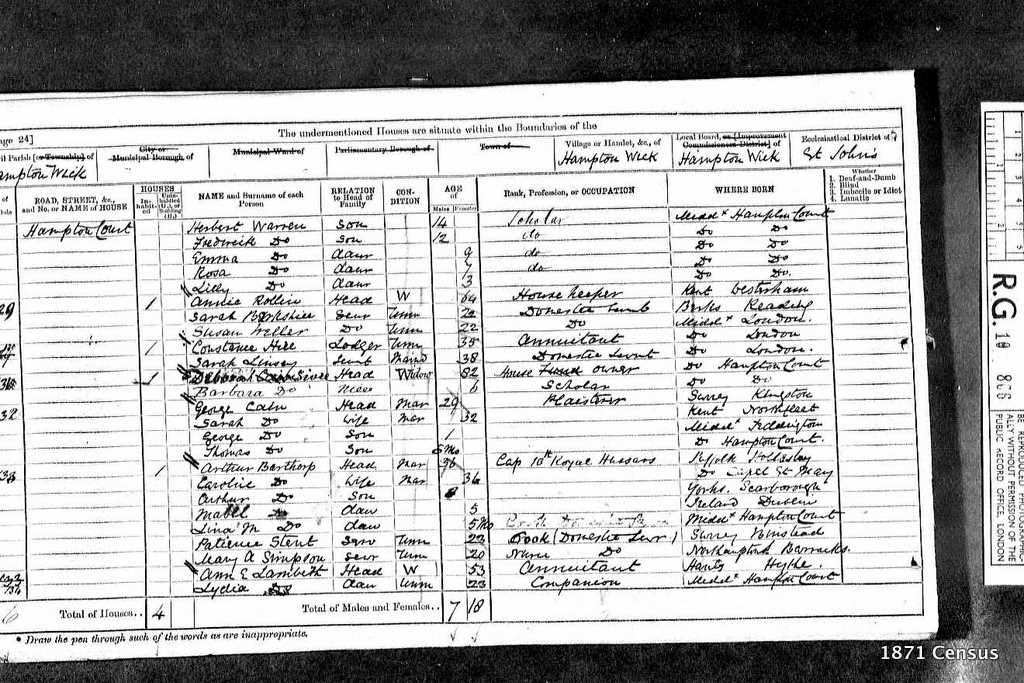 age 24]
The undermentioned Houses are situate within the Boundaries of the
il Parish [or Township] of City or Municipal Borough of Municipal Ward of Parliamentary Borough of Town of Village or Hamlet, &c., of Local Board, or [Improvement Commissioners District] of Ecclesiastical District of
ampton Wick Hampton Wick Hampton Wick St John's
ROAD, STREET, &c., and No. or NAME of HOUSE HOUSES Inhabited Uninhabited (U.), or Building (B.) NAME and Surname of each Person RELATION to Head of Family CONDITION AGE of Males Females Rank, Profession, or OCCUPATION WHERE BORN Whether 1. Deaf-and-Dumb 2. Blind 3. Imbecile or Idiot 4. Lunatic
Hampton Court Herbert Warren Son 14 Scholar Middx Hampton Court
Frederick Do Son 12 do Do Do
Emma Do daur 9 do Do Do
Rosa Do daur 7 do Do Do
Lilly Do daur 3 Do Do.
29 1 Annie Rollin Head W 64 House keeper Kent Westerham
Sarah Serv Unm 22 Domestic Berks Reading
Susan Do Unm 22 Do Middx London.
1 Constance Lodger Unm 35 Annuitant Do London
Sarah Linsey Servt 38 Domestic Servt Do London.
1 Head Widow 82 House owner Do Hampton Court
Barbara Do Niece 6 Scholar Do Do
32 George Cain Head Mar 29 Plaisterer Surrey Kingston
Sarah Do Wife Mar 32 Kent Northfleet
George Do Son 1 Middx Teddington
Thomas Do Son 5 Mo Do Hampton Court.
33 1 Arthur Barthorp Head Mar 36 Cap 10th Royal Hussars Suffolk Hollesley
Caroline Do Wife Mar 36 Do Capel St Mary
Arthur Do Son Yorks. Scarborough
Mabel Do daur 5 Ireland Dublin
Lina M Do daur 5 Mo Middx Hampton Court
Patience Stent Serv Unm 23 Cook (Domestic Serv.) Surrey
Mary A Simpson Serv Unm 20 Nurse Do Northampton Barracks.
Ann E Lambeth Head W 53 Annuitant Hants Hythe.
Lydia Do daur Unm 23 Companion Middx Hampton Court
6 Total of Houses.. 4 Total of Males and Females.. 7 18
* Draw the pen through such of the words as are inappropriate.
R.G. 10
PUBLIC RECORD OFFICE, LONDON
1871 Census